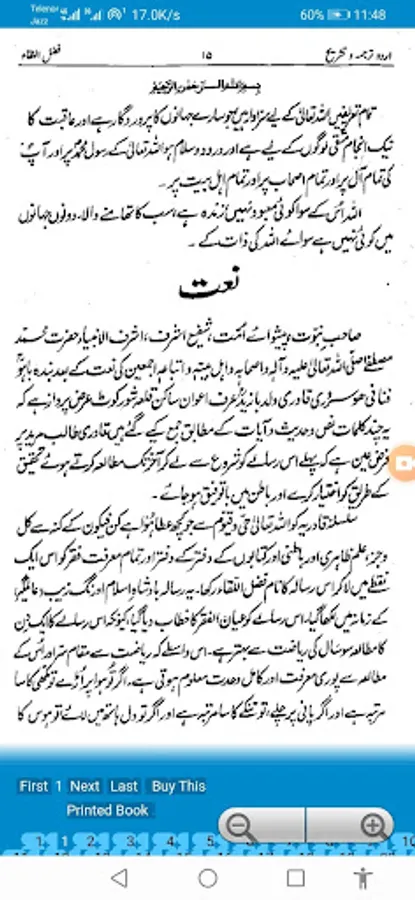 Telenor
Jazz
17.0K/s
60%
11:48
اردو ترجمہ و تشریح
۱۵
فضل اللقاء
بسم اللہ الرحمٰن الرحیم
تمام تعریفیں اللہ تعالیٰ کے لیے سزاوار ہیں جو سارے جہانوں کا پروردگار ہے اور عاقبت کا
نیک انجام متقی لوگوں کے لیے ہے اور درود و سلام ہو اللہ تعالیٰ کے رسول محمدؐ پر اور آپؐ
کی تمام آل پر اور تمام اصحاب پر اور تمام اہل بیت پر۔
اللہ اُس کے سوا کوئی معبود نہیں زندہ ہے، سب کا تھامنے والا۔ دونوں جہانوں
میں کوئی نہیں ہے سوائے اللہ کی ذات کے۔
نعت
صاحبِ نبوت، پیشوائے اُمت، شفیعِ اشرف، اشرف الانبیاء حضرت محمد
مصطفےٰ صلی اللہ تعالیٰ علیہ وآلہ واصحابہ واہل بیتہ اجمعین کی نعت کے بعد بندہ باہوؒ
فنا فی ھو سروری قادری ولد بازیدؒ عرف اعوان ساکن قلعہ شور کوٹ عرض پرداز ہے کہ
یہ چند کلمات نص و حدیث و آیات کے مطابق جمع کیے گئے ہیں قادری طالب مرید پر
فرضِ عین ہے کہ پہلے اس رسالے کو شروع سے لے کر آخر تک مطالعہ کرتے ہوئے تحقیق
کے طریق کو اختیار کرے اور باطن میں باتوفیق ہو جائے۔
سلسلہ قادریہ کو اللہ تعالیٰ حی و قیوم سے جو کچھ عطا ہوا ہے کن فیکون کے کنہ سے کل
و جز، علم ظاہری اور باطنی اور کتابوں کے دفتر کے دفتر اور تمام معرفت فقر کو اس ایک
نقطے میں لا کر اس رسالہ کا نام فضل اللقاء رکھا۔ یہ رسالہ بادشاہِ اسلام اورنگ زیب (عالمگیر)
کے زمانہ میں لکھا گیا، اس رسالے کو عیان الفقر کا خطاب دیا گیا، کیونکہ اس رسالے کا ایک دن
کا مطالعہ سو سال کی ریاضت سے بہتر ہے۔ اس واسطے کہ ریاضت سے مقام اور اس کے
مطالعہ سے پوری معرفت اور کامل وحدت معلوم ہوتی ہے۔ اگر تُو ہوا پر اُڑے تو مکھی کا سا
مرتبہ ہے اور اگر پانی پر چلے، تو تنکے کا سا مرتبہ ہے اور اگر تو دل ہاتھ میں لائے تو ہوس کا
First 1 Next Last Buy This
Printed Book
1. 1 2. 3. 4. 5. 6. 7. 8. 9. 10